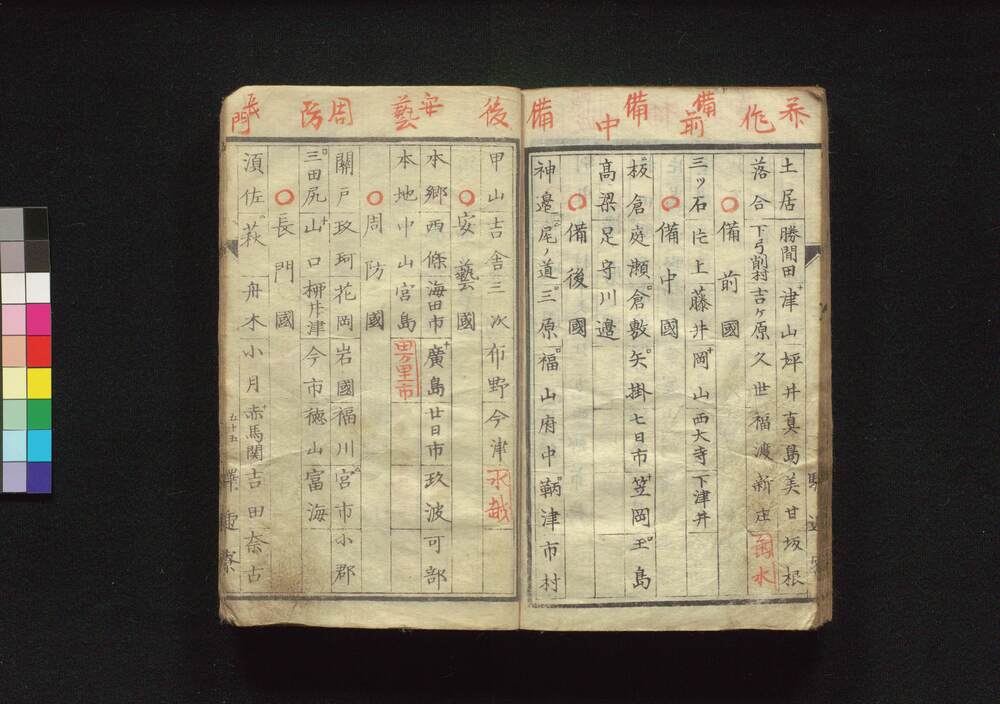 美作
備前
備中
備後
安藝
周防
長門
土居勝間田津山坪井真島美甘坂根
落合下弓削村吉ヶ原久世福渡新庄
備前國
三ッ石片上藤井岡山西大寺下津井
備中國
板倉庭瀬倉敷矢掛七日市笠岡玉島
高梁足守川邉
備後國
神邉尾ノ道三原福山府中鞆津市村
甲山吉舎三次布野今津
安藝國
本郷西條海田市廣島廿日市玖波可部
本地中山宮島
周防國
關戸玖珂花岡岩國福川宮市小郡
三田尻山口栁井津今市徳山富海
長門國
須佐萩舟木小月赤馬関吉田奈古
五十五
驛逓寮